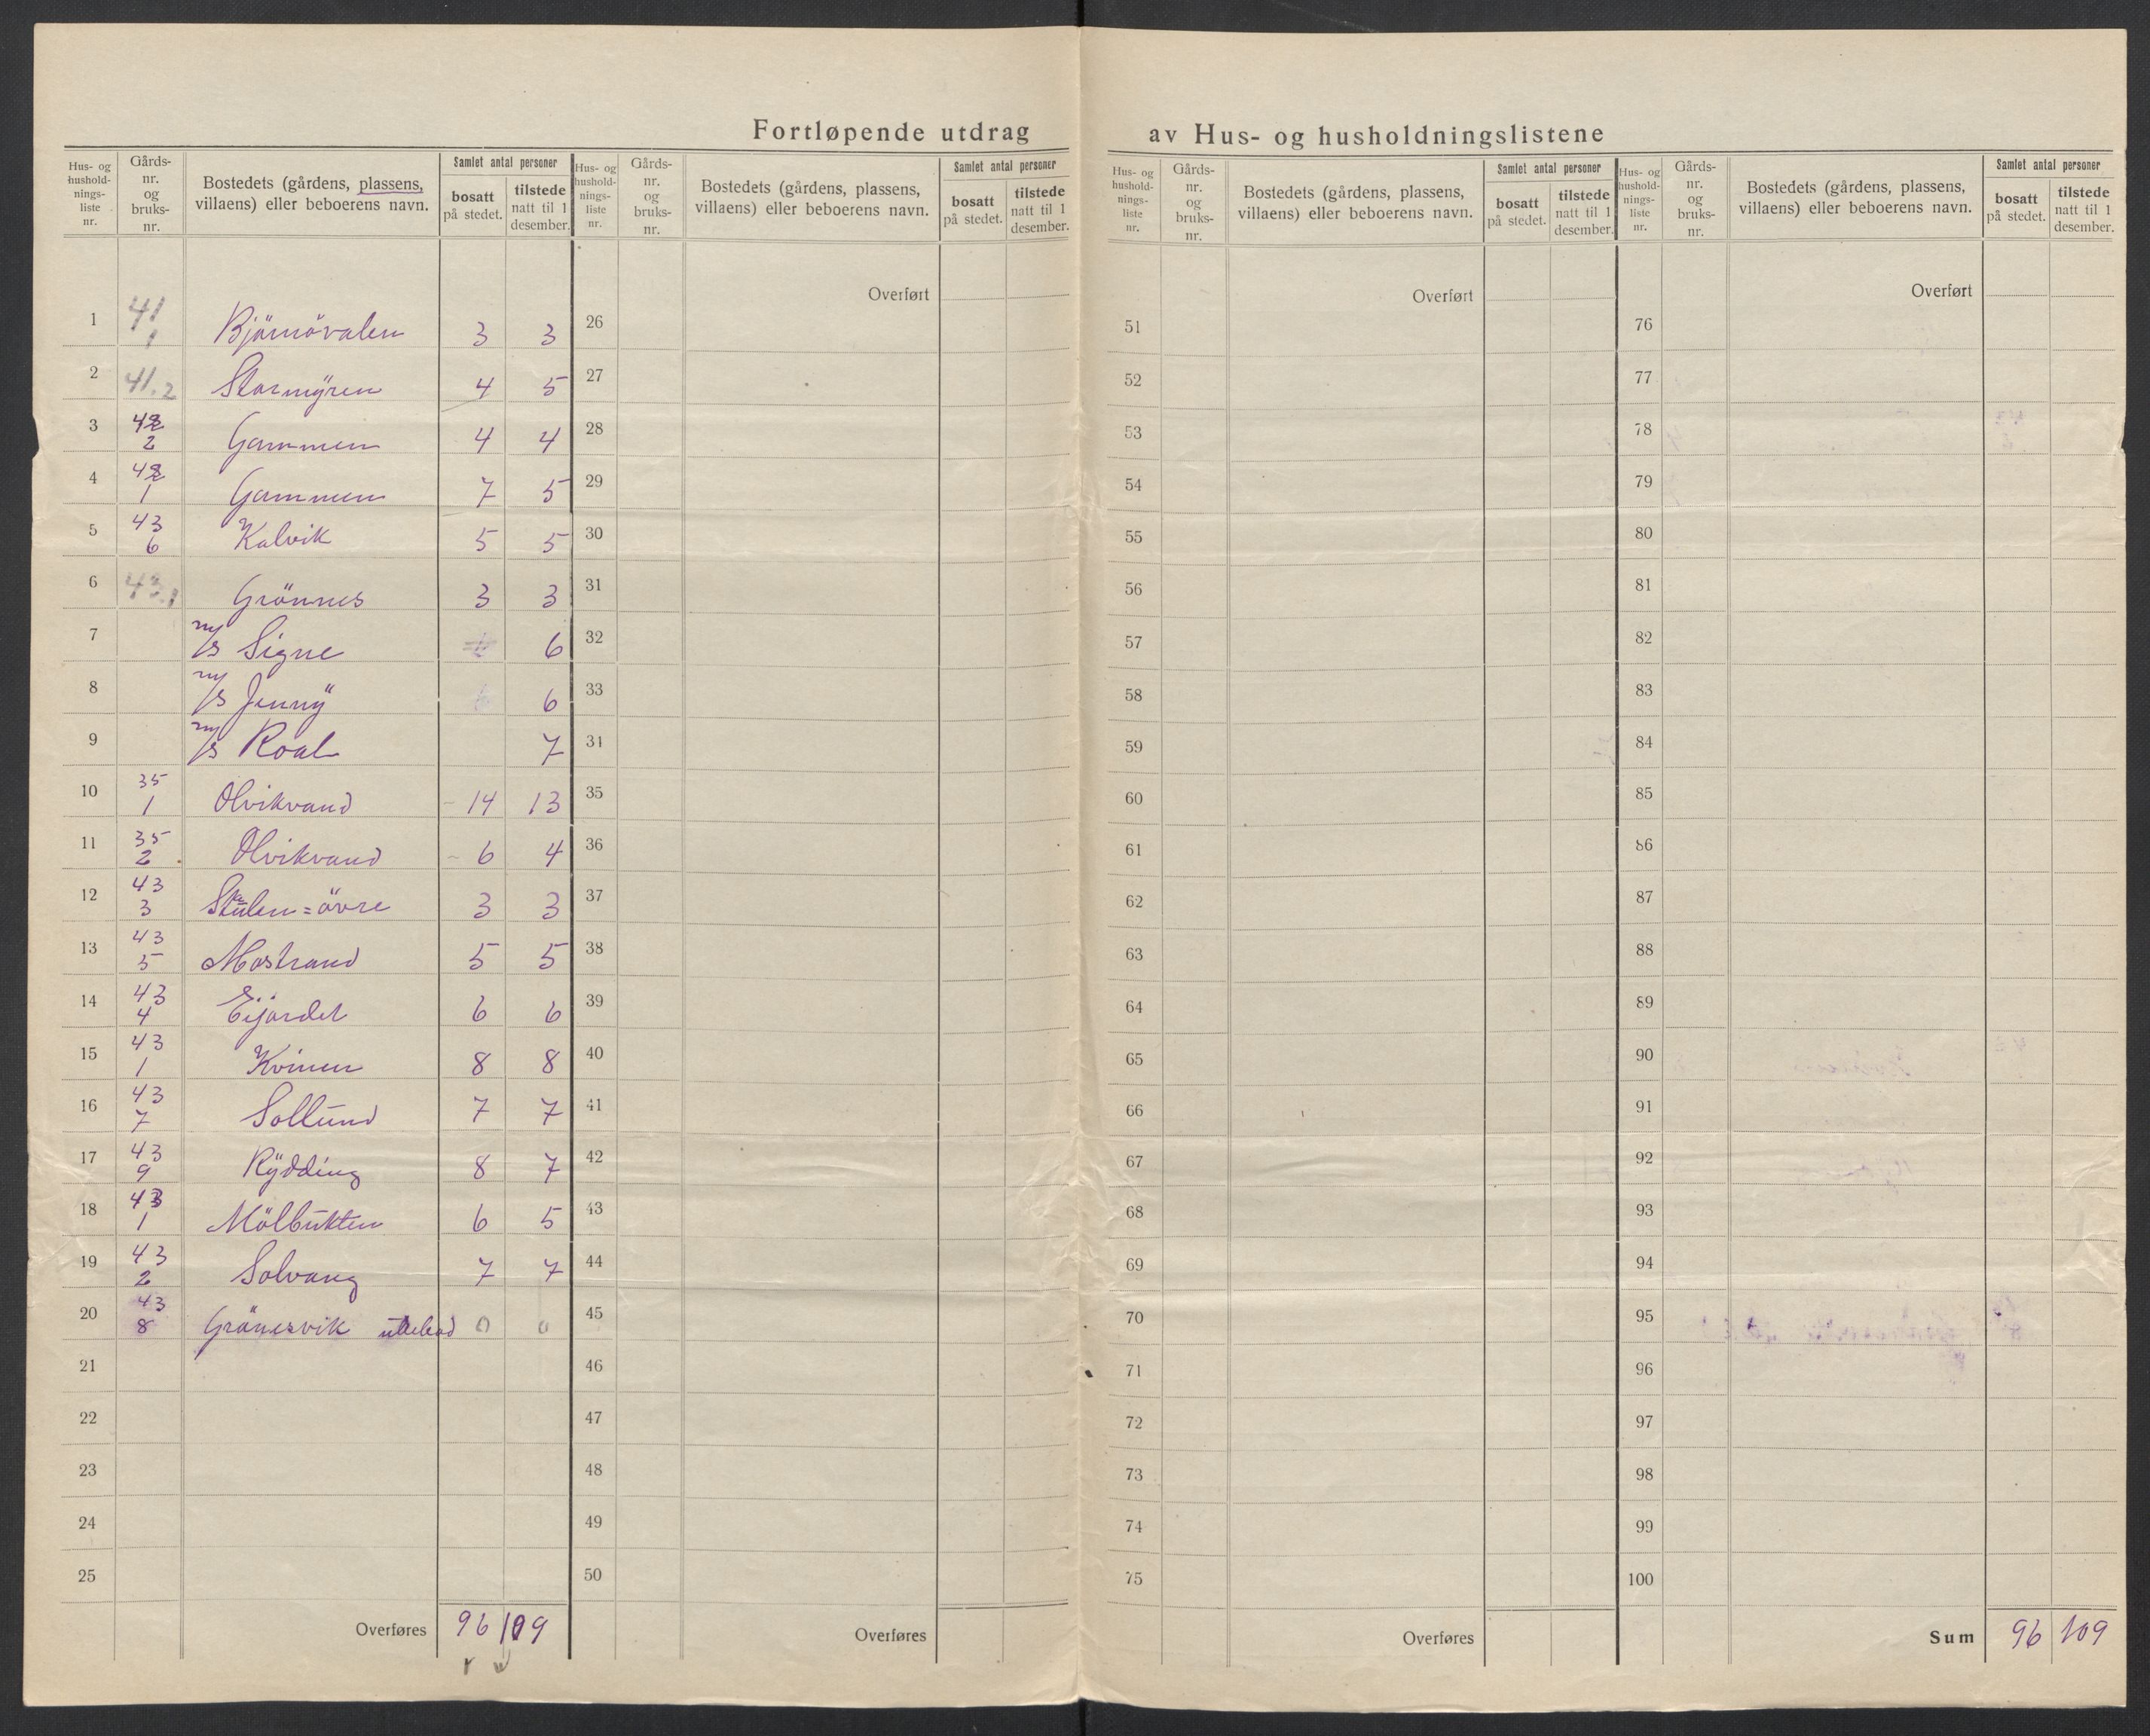 Fortløpende utdrag av Hus- og husholdningslistene
Hus- og hushold- nings- liste nr.
Gårds- nr. og bruks- nr.
Bostedets (gårdens, plassens, villaens) eller beboerens navn.
Samlet antal personer
bosatt på stedet.
tilstede natt til 1 desember.
1 41 1 Björnövalen 3 3
2 41.2 Stormÿren 4 5
3 42 2 Gammen 4 4
4 42 1 Gammen 7 5
5 43 6 Kalvik 5 5
6 43.1 Grönnes 3 3
7 m/s Signe 6
8 m/s Jennÿ 6
9 m/s Roal 7
10 35 1 Olvikvand 14 13
11 35 2 Olvikvand 6 4
12 43 3 övre 3 3
13 43 5 Mostrand 5 5
14 43 4 Eijardet 6 6
15 43 1 Kvinen 8 8
16 43 7 Sollund 7 7
17 43 9 Rÿdding 8 7
18 43 1 Mölbukten 6 5
19 43 2 Solvang 7 7
20 43 8 Grönesvik 0 0
21
22
23
24
25
Overføres 96 109
Hus- og hushold- nings- liste nr.
Gårds- nr. og bruks- nr.
Bostedets (gårdens, plassens, villaens) eller beboerens navn.
Samlet antal personer
bosatt på stedet.
tilstede natt til 1 desember.
Overført
26
27
28
29
30
31
32
33
31
35
36
37
38
39
40
41
42
43
44
45
46
47
48
49
50
Overføres
Hus- og hushold- nings- liste nr.
Gårds- nr. og bruks- nr.
Bostedets (gårdens, plassens, villaens) eller beboerens navn.
Samlet antal personer
bosatt på stedet.
tilstede natt til 1 desember.
Overført
51
52
53
54
55
56
57
58
59
60
61
62
63
64
65
66
67
68
69
70
71
72
73
74
75
Overføres
Hus- og hushold- nings- liste nr.
Gårds- nr. og bruks- nr.
Bostedets (gårdens, plassens, villaens) eller beboerens navn.
Samlet antal personer
bosatt på stedet.
tilstede natt til 1 desember.
Overført
76
77
78
79
80
81
82
83
84
85
86
87
88
89
90
91
92
93
94
95
96
97
98
99
100
Sum 96 109